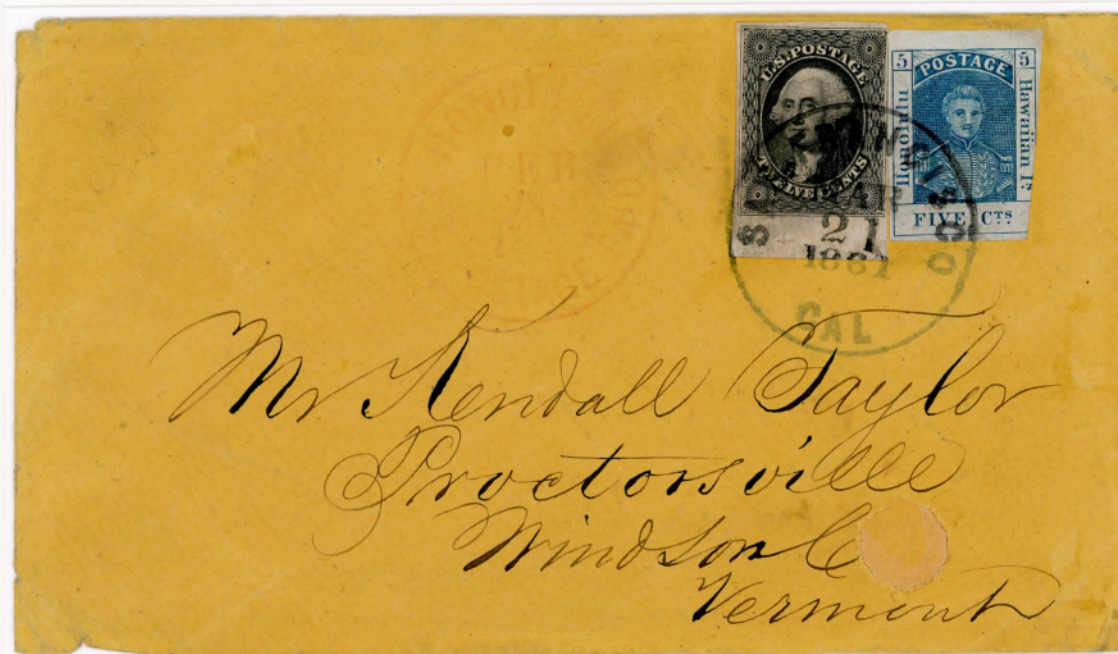 U.S. POSTAGE
TWELVE CENTS
5 POSTAGE 5
Honolulu
Hawaiian Is
FIVE CTS
21
1861
CAL
Mr Kendall Taylor
Proctorsville
Windsor C
Vermont